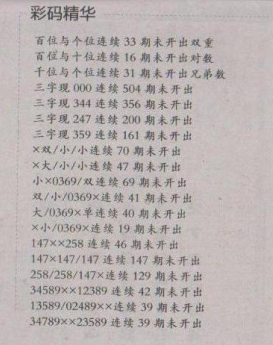 彩码精华
百位与个位连续 33 期未开出双重
百位与十位连续 16 期未开出对数
千位与个位连续 31 期未开出兄弟数
三字现 000 连续 504 期未开出
三字现 344 连续 356 期未开出
三字现 247 连续 200 期未开出
三字现 359 连续 161 期未开出
×双/小/小连续 70 期未开出
×大/小/小连续 47 期未开出
小×0369/双连续 69 期未开出
双/小/0369×连续 41 期未开出
大/0369×单连续 40 期未开出
×小/0369×连续 19 期未开出
147××258 连续 46 期未开出
147×147/147 连续 147 期未开出
258/258/147×连续 129 期未开出
34589××12389 连续 42 期未开出
13589/02489××连续 39 期未开出
34789××23589 连续 39 期未开出